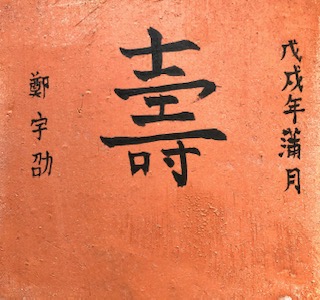 戊戌年蒲月
壽
鄭宇劭